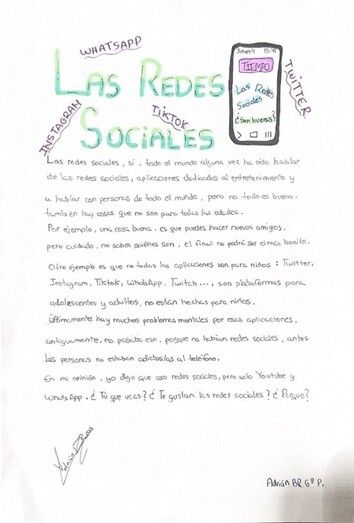 WHATSAPP
LAS REDES
SOCIALES
INSTAGRAM
TIKTOK
TWITTER
TIEMPO
Las Redes
Sociales
¿Son buenas?
Las redes sociales, sí, todo el mundo alguna vez ha oido hablar
de las redes sociales, aplicaciones dedicadas al entretenimiento y
a hablar con personas de todo el mundo, pero no todo es bueno.
también hay cosas que no son para todas las edades.
Por ejemplo, una cosa buena, es que puedes hacer nuevos amigos,
pero cuidado, no sabes quiénes son, el final no podrá ser el más bonito.
Otro ejemplo es que no todas las aplicaciones son para niños: Twitter,
Instagram, Tiktok, WhatsApp, Twitch..., son plataformas para
adolescentes y adultos, no están hechas para niños.
Últimamente hay muchos problemas mentales por esas aplicaciones,
antiguamente, no pasaba eso, porque no habían redes sociales, antes
las personas no estaban adictos/as al teléfono.
En mi opinión, yo digo que uso redes sociales, pero solo Youtube y
WhatsApp. ¿Tú que usas? ¿Te gustan las redes sociales? ¿Porque?
Adrián BR 6º P.